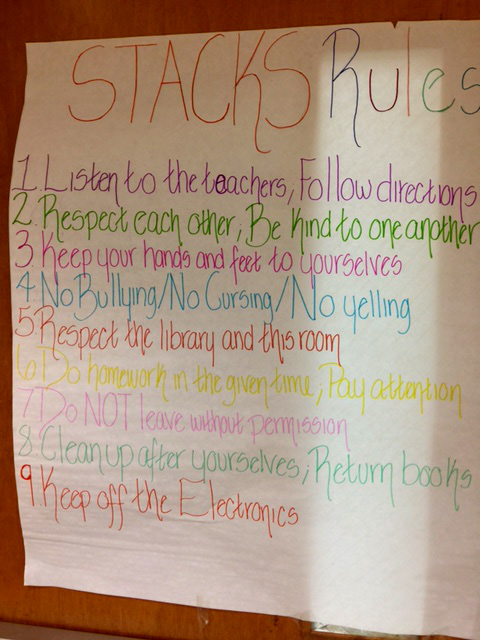 STACKS Rules
1. Listen to the teachers, Follow directions
2. Respect each other, Be Kind to one another
3 Keep your hands and feet to yourselves
4 No Bullying/No Cursing/No yelling
5 Respect the library and this room
6 Do homework in the given time, Pay attention
7 Do NOT leave without permission
8 Clean up after yourselves, Return books
9 Keep off the Electronics